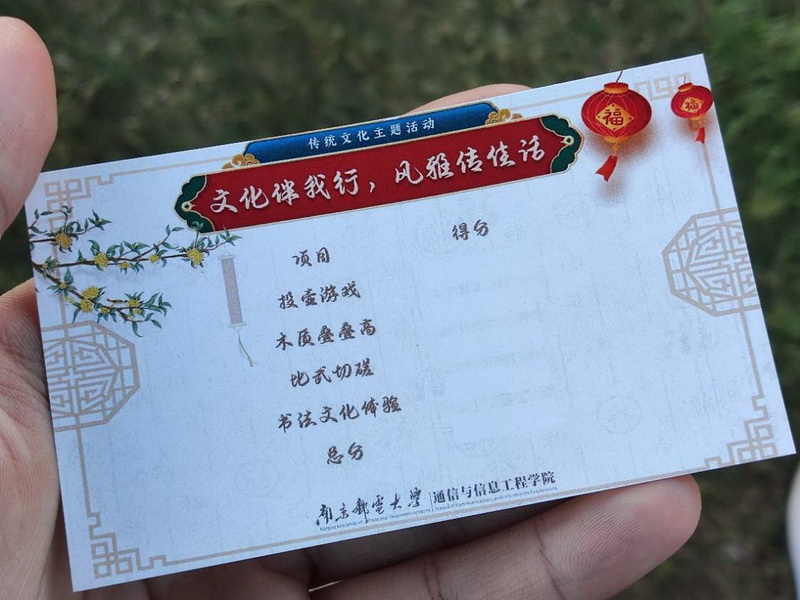 传统文化主题活动
文化伴我行，风雅传佳话
福
福
项目 得分
投壶游戏
木质叠叠高
比武切磋
书法文化体验
总分
南京邮电大学 通信与信息工程学院